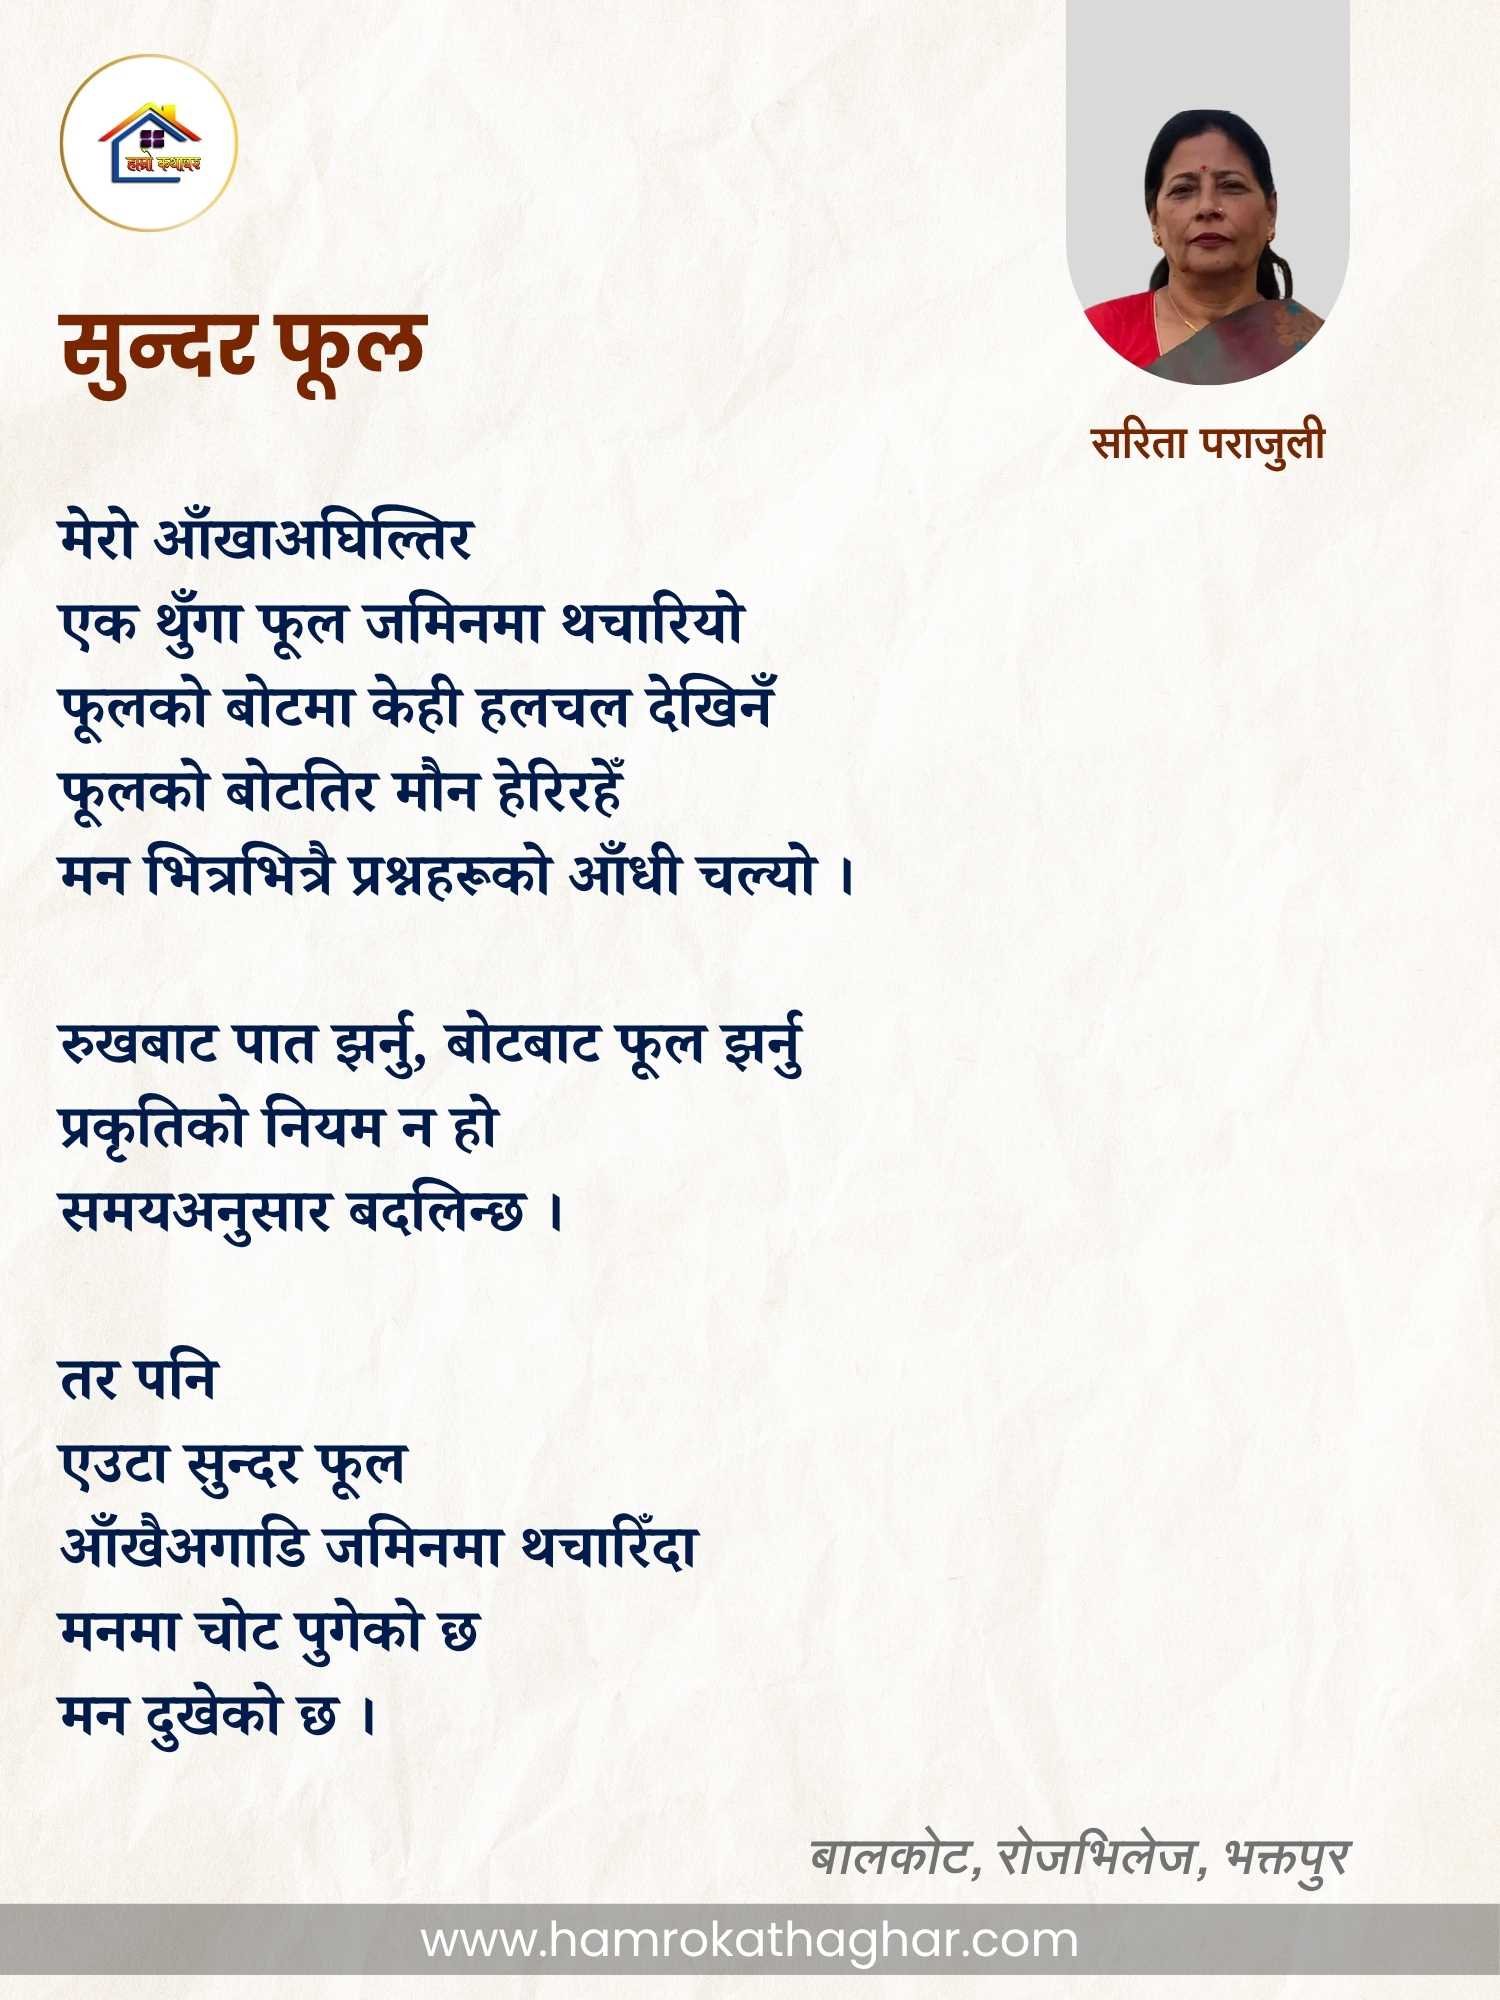 हाम्रो कथाघर
सुन्दर फूल
सरिता पराजुली
मेरो आँखाअघिल्तिर
एक थुँगा फूल जमिनमा थचारियो
फूलको बोटमा केही हलचल देखिनँ
फूलको बोटतिर मौन हेरिरहेँ
मन भित्रभित्रै प्रश्नहरूको आँधी चल्यो ।
रुखबाट पात झर्नु, बोटबाट फूल झर्नु
प्रकृतिको नियम न हो
समयअनुसार बदलिन्छ ।
तर पनि
एउटा सुन्दर फूल
आँखैअगाडि जमिनमा थचारिँदा
मनमा चोट पुगेको छ
मन दुखेको छ ।
बालकोट, रोजभिलेज, भक्तपुर
www.hamrokathaghar.com